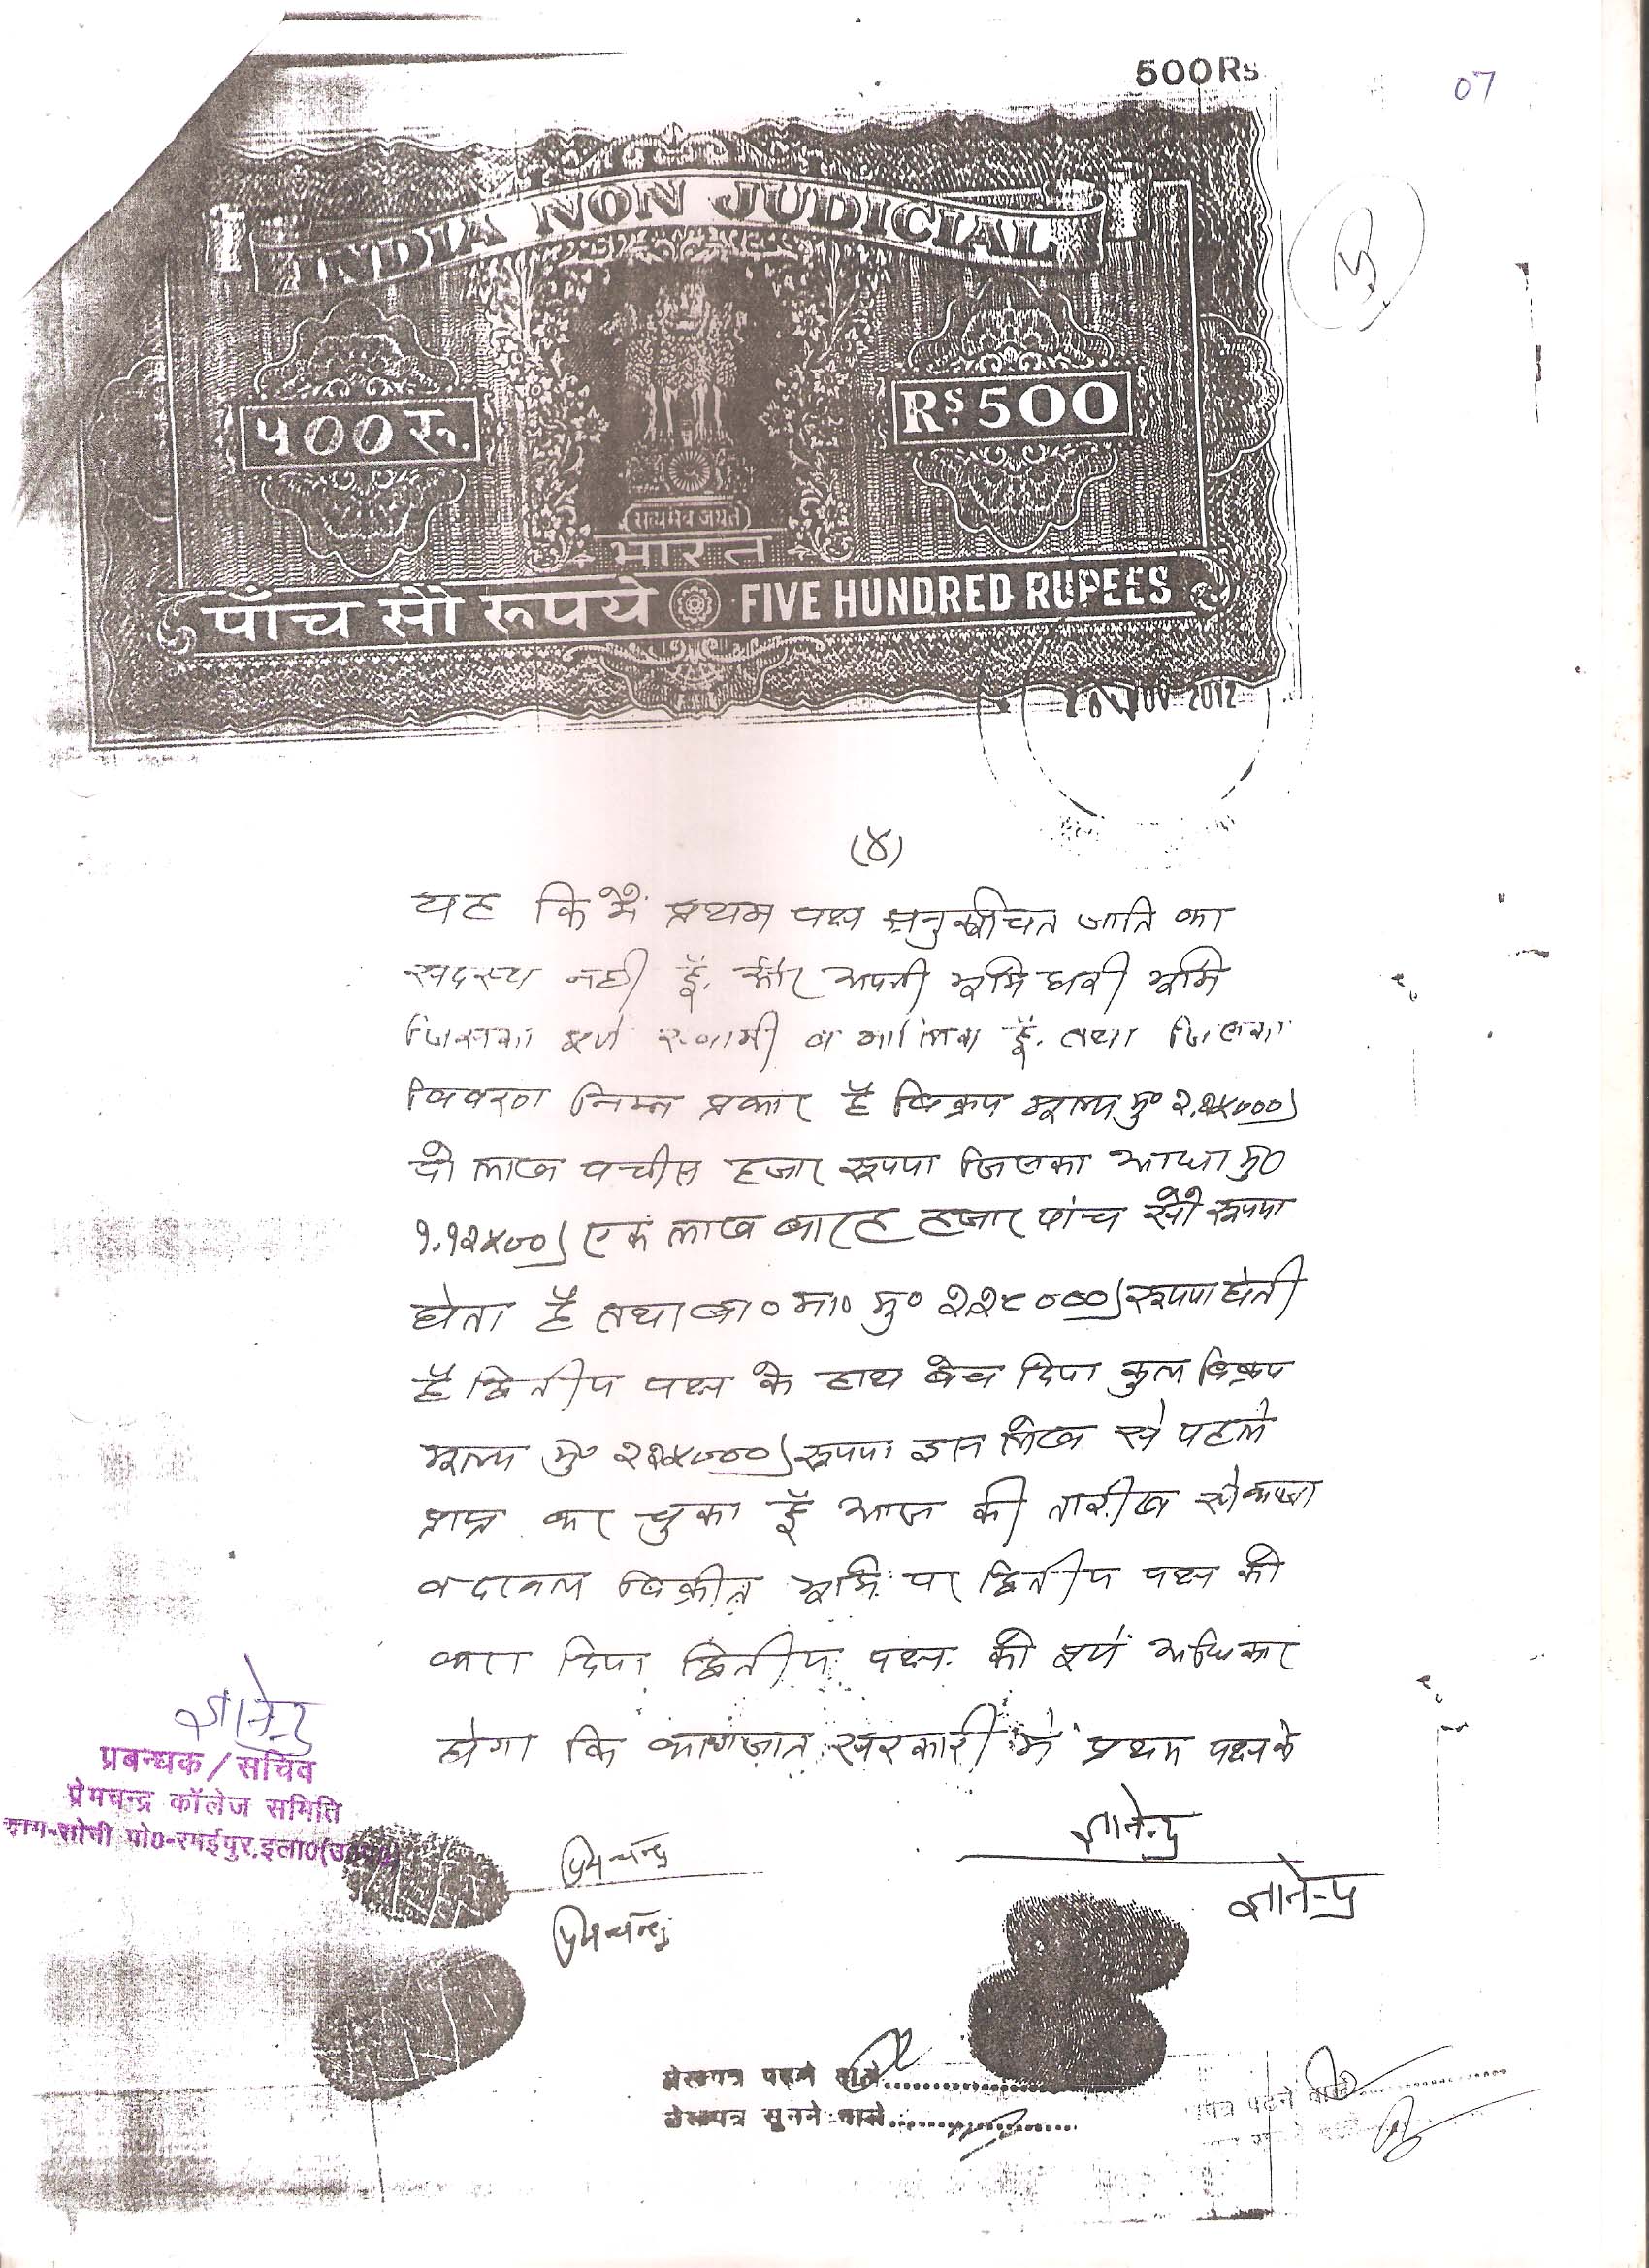 500Rs
07
INDIA NON JUDICIAL
५00 रु.
Rs. 500
सत्यमेव जयते
भारत
पाँच सौ रूपये FIVE HUNDRED RUPEES
NOV 2012
(४)
यह कि मैं प्रथम पक्ष अनुसूचित जाति का
सदस्य नहीं हूँ. और अपनी भूमि धरी भूमि
जिसका पूर्ण स्वामी व मालिक हूँ. तथा जिसका
विवरण निम्न प्रकार है विक्रय मूल्य मु० २,२५०००)
दो लाख पचीस हजार रूपया जिसका आधा मु०
१,१२५००) एक लाख बारह हजार पांच सौ रूपया
होता है तथा बा० मा० मु० २,२८०००) रूपया होती
है द्वितीय पक्ष के हाथ बेच दिया कुल विक्रय
मूल्य मु० २२५०००) रूपया इस लेख से पहले
प्राप्त कर चुका हूँ आज की तारीख से कब्जा
व दखल विक्रीत भूमि पर द्वितीय पक्ष को
करा दिया द्वितीय पक्ष को पूर्ण अधिकार
होगा कि कागजात सरकारी में प्रथम पक्ष के
ज्ञानेन्द्र
प्रबन्धक / सचिव
प्रेमचन्द्र कॉलेज समिति
ग्राम-सोनी पो0-रमईपुर, इला0
प्रेमचन्द्र
प्रेमचन्द्र
ज्ञानेन्द्र
ज्ञानेन्द्र
लेखपत्र पढ़ने वाले
लेखपत्र सुनने वाले
पत्र पढने वाले